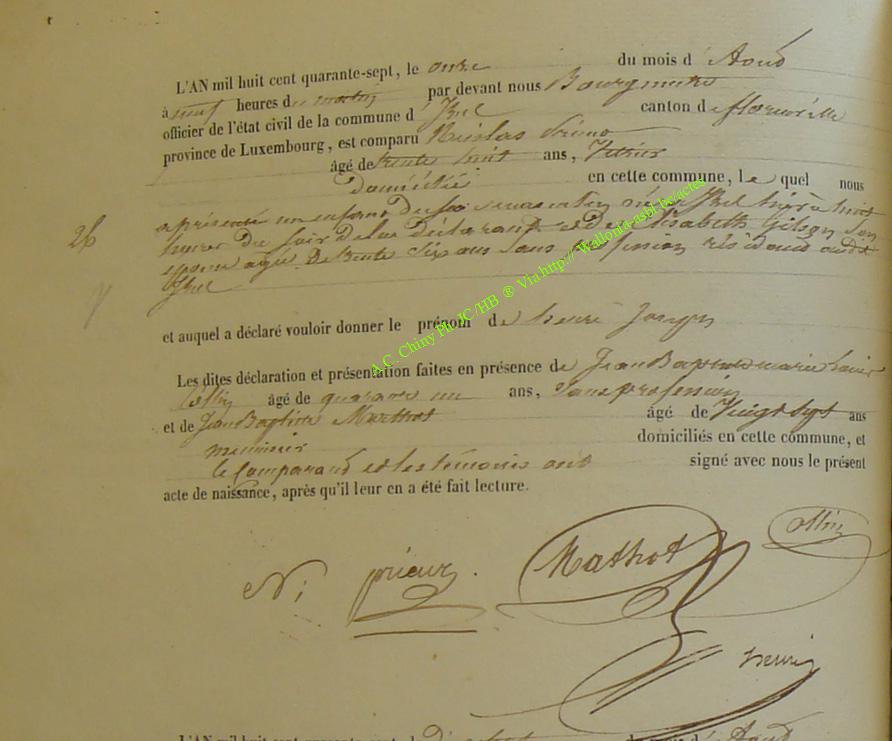 L'AN mil huit cent quarante-sept, le onze du mois d' Aoud
à neuf heures du matin par devant nous Bourgmestre
officier de l'état civil de la commune d' Izel canton de florenville
province de Luxembourg, est comparu Nicolas
âgé de trente huit ans,
Domicilié en cette commune, le quel nous
26
a présenté un enfant du sexe masculin né à Izel hier à huit
heures du soir de lui Déclarant et de Elisabeth Gilson son
épouse agée de trente six ans sans profession résidand audit
Izel
et auquel a déclaré vouloir donner le prénom de henri Joseph
Les dites déclaration et présentation faites en présence de Jean Baptiste marie
âgé de quarante un ans, sans profession
et de Jean Baptiste Mathot âgé de Vingt sept ans
meunier domiciliés en cette commune, et
le Comparand et les témoins ont signé avec nous le présent
acte de naissance, après qu'il leur en a été fait lecture.
N; prieur. Mathot
henri
L'AN mil huit cent quarante-sept du mois d' Aoud
A.C. Chiny Ph JC /HB ® Via http:// Wallonia-asbl.be/actes